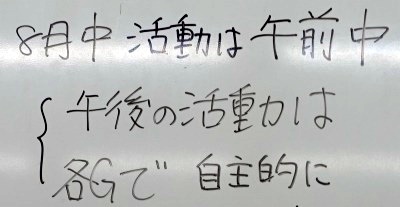 8月中 活動は午前中
{ 午後の活動は
各Gで 自主的に